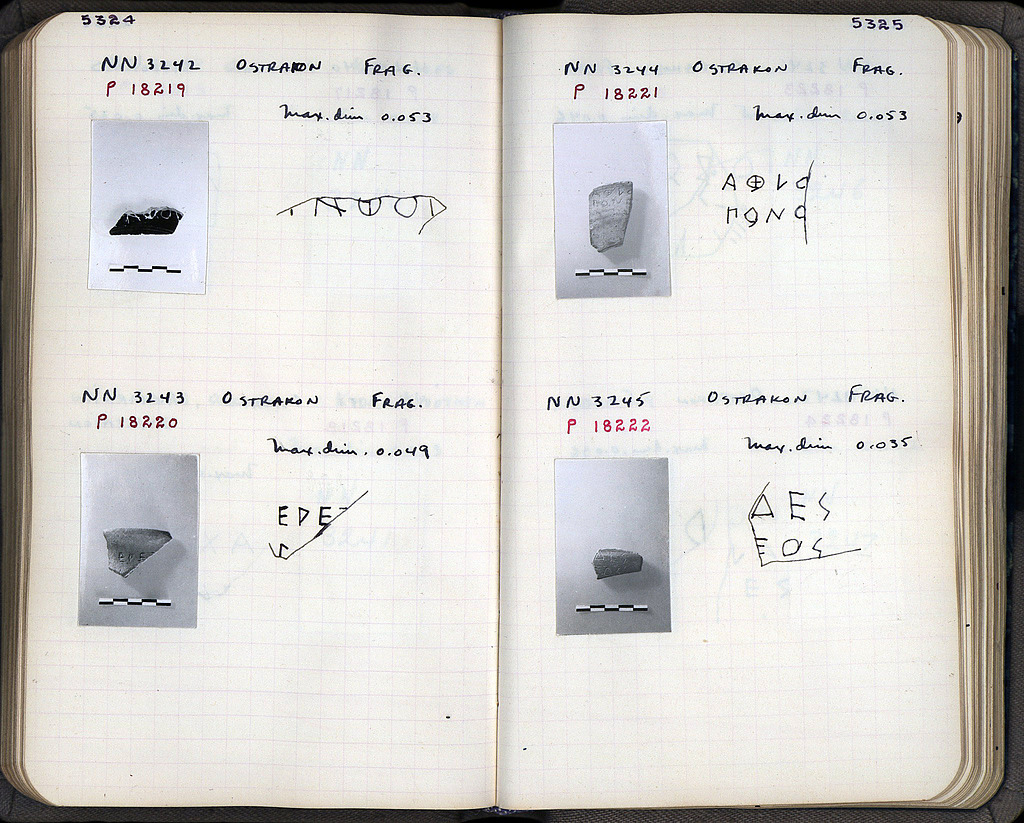 5324
NN 3242 OSTRAKON FRAG.
P 18219
Max. dim 0.053
NN 3243 OSTRAKON FRAG.
P 18220
Max. dim. 0.049
ΕΡΕ
5325
NN 3244 OSTRAKON FRAG.
P 18221
Max. dim 0.053
NN 3245 OSTRAKON FRAG.
P 18222
Max. dim 0.035
ΔΕS
ΕΟS